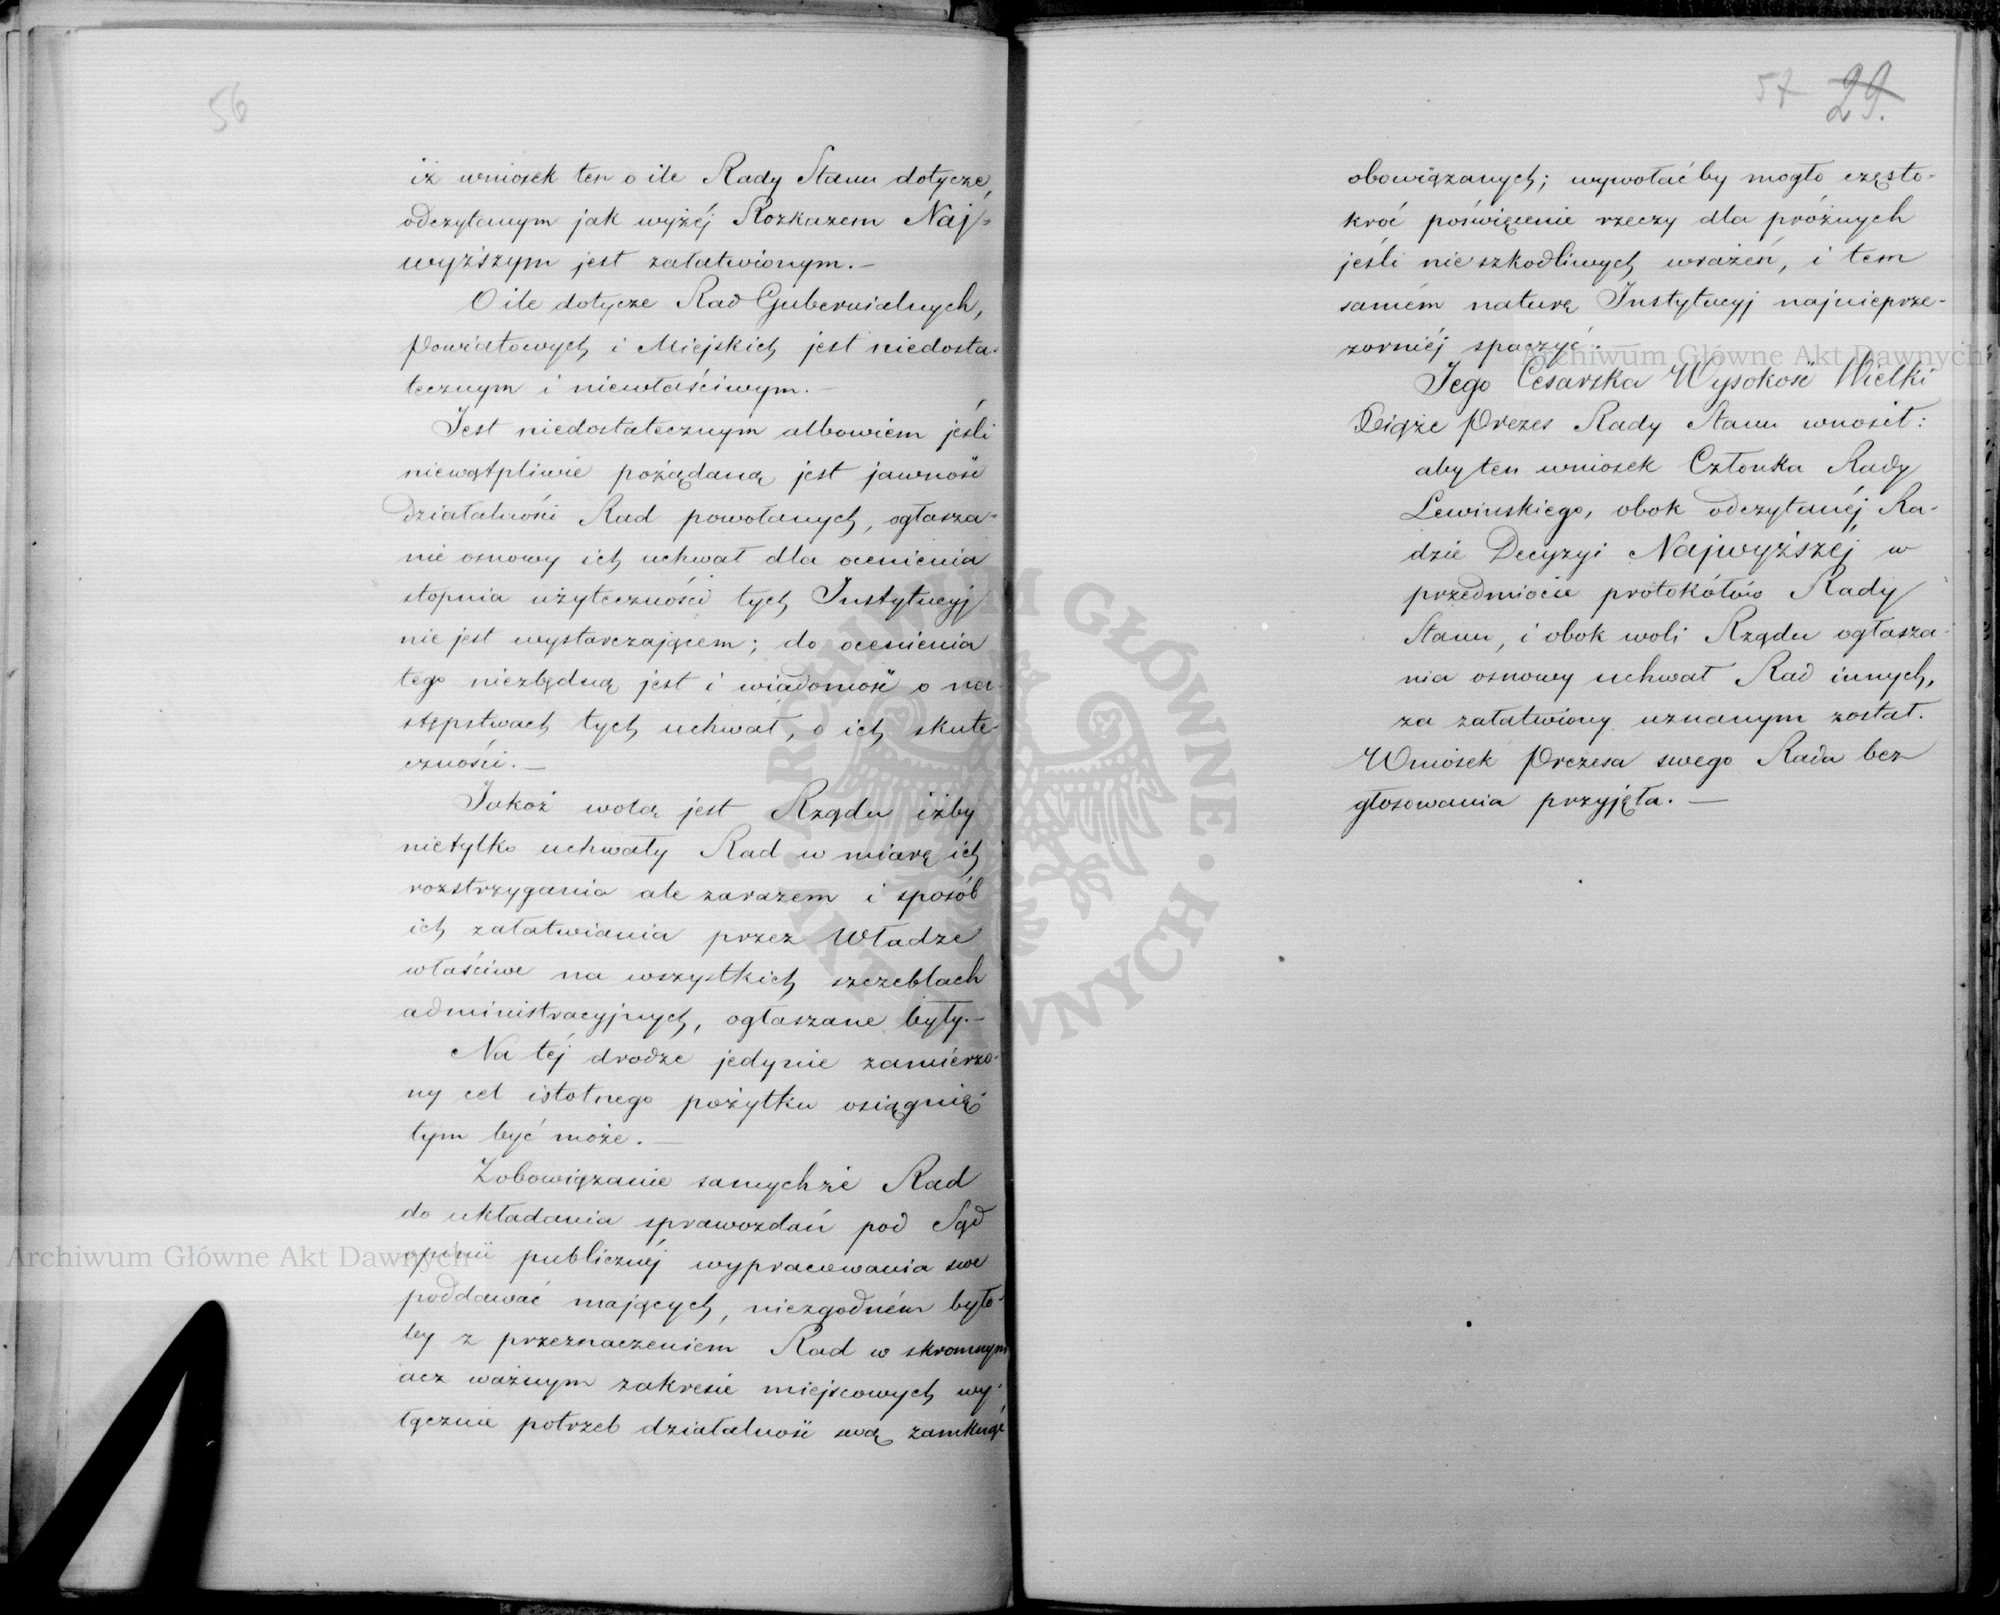 56
iż wniosek ten o ile Rady Stanu dotycze,
odczytanym jak wyżéj Rozkazem Naj-
wyższym jest załatwionym.—
O ile dotycze Rad Gubernialnych,
Powiatowych i Miejskich jest niedosta-
tecznym i niewłaściwym.—
Jest niedostatecznym albowiem jeśli
niewątpliwie pożądaną jest jawność
działalności Rad powołanych, ogłasza-
nie osnowy ich uchwał dla ocenienia
stopnia użyteczności tych Instytucyj
nie jest wystarczającem; do ocenienia
tego niezbędną jest i wiadomość o na-
stępstwach tych uchwał, o ich skute-
czności.—
Jakoż wolą jest Rządu iżby
nietylko uchwały Rad w miarę ich
rozstrzygania ale zarazem i sposób
ich załatwiania przez Władze
właściwe na wszystkich szczeblach
administracyjnych, ogłaszane były.—
Na téj drodze jedynie zamierzo-
ny cel istotnego pożytku osiągnię-
tym być może.—
Zobowiązanie samychże Rad
do układania sprawozdań pod Sąd
opinii publicznéj wypracowania swe
poddawać mających, niezgodném było-
by z przeznaczeniem Rad w skromnym
acz ważnym zakresie miejscowych wy-
łącznie potrzeb działalność swą zamknąć
57 29.
obowiązanych; wywołaćby mogło często-
kroć poświęcenie rzeczy dla próżnych
jeśli nie szkodliwych wrażeń, i tem
samém naturę Instytucyj najnieprze-
zorniéj spaczyć.—
Jego Cesarska Wysokość Wielki
Xiąże Prezes Rady Stanu wnosił:
aby ten wniosek Członka Rady
Lewinskiego, obok odczytanéj Ra-
dzie Decyzyi Najwyższéj w
przedmiocie protokółów Rady
Stanu, i obok woli Rządu ogłasza-
nia osnowy uchwał Rad innych,
za załatwiony uznanym został.
Wniosek Prezesa swego Rada bez
głosowania przyjęła.—
Archiwum Główne Akt Dawnych
Archiwum Główne Akt Dawnych
ARCHIWUM GŁÓWNE AKT DAWNYCH